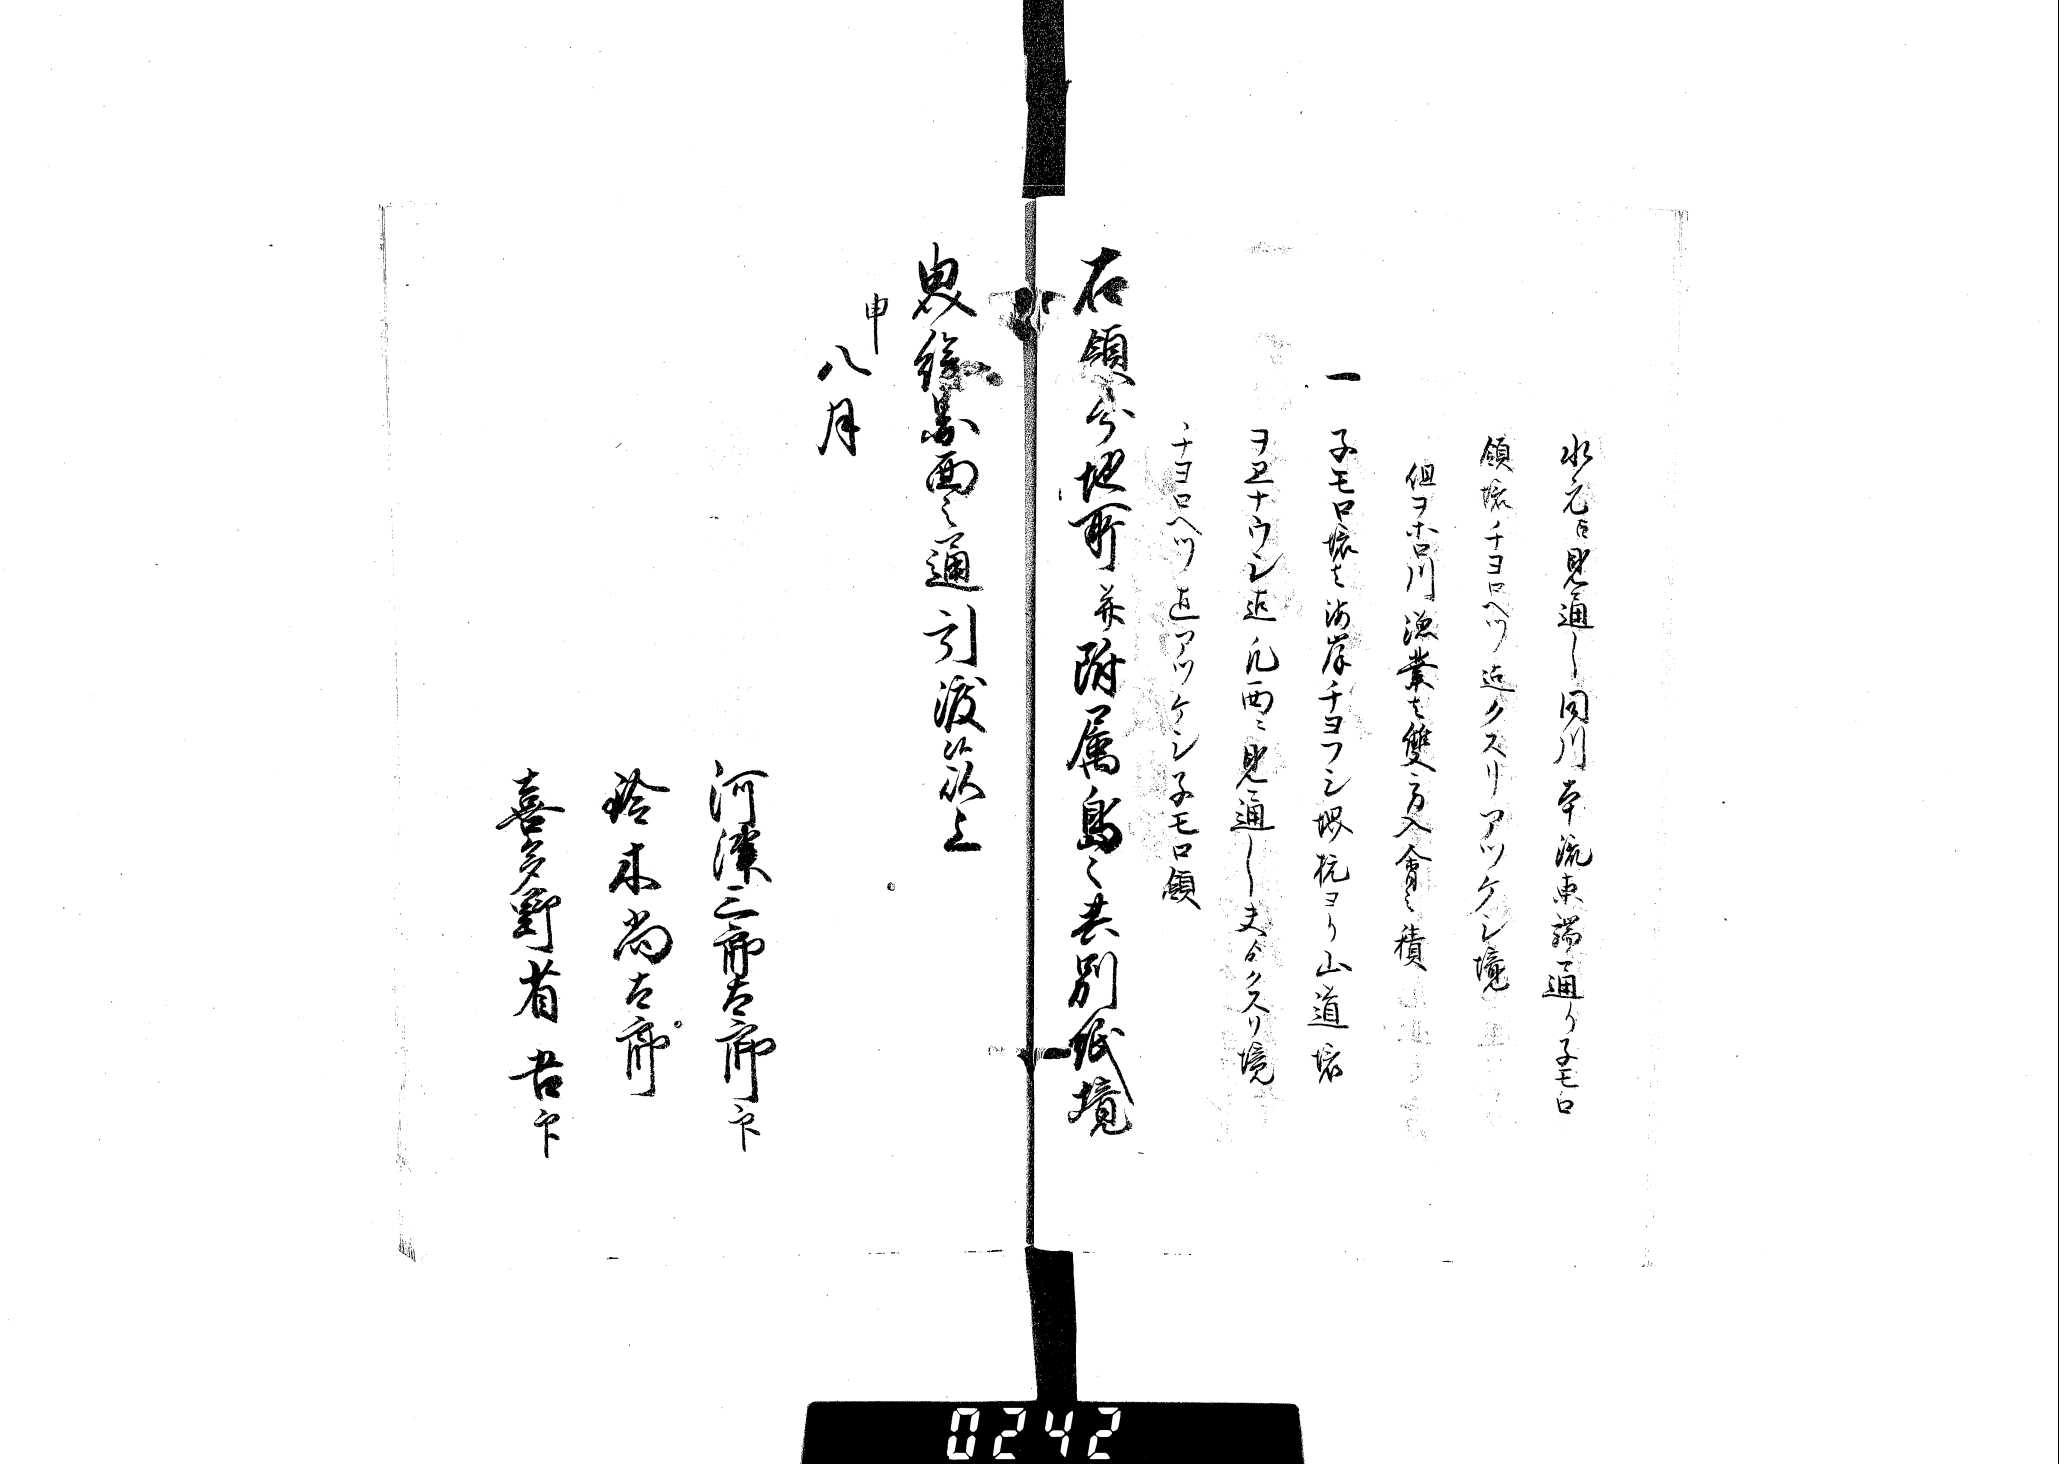 水元ヨリ見通し同川本流東端通り子モロ
領境チヨロヘツ迄クスリアツケシ境
但ヲホロ川漁業者雙方入會之積
一 子モロ境者海岸チヨフシ境杭ヨリ山道境
ヲワナウシ迄凡西ニ見通し夫ゟクスリ境
チヨロヘツ迄アツケシ子モロ領
右領分地所并附属島々共別紙境
界繪圖面之通引渡候以上
申
八月
河津三郎太郎印
鈴木尚太郎
喜多野省吾印
0242